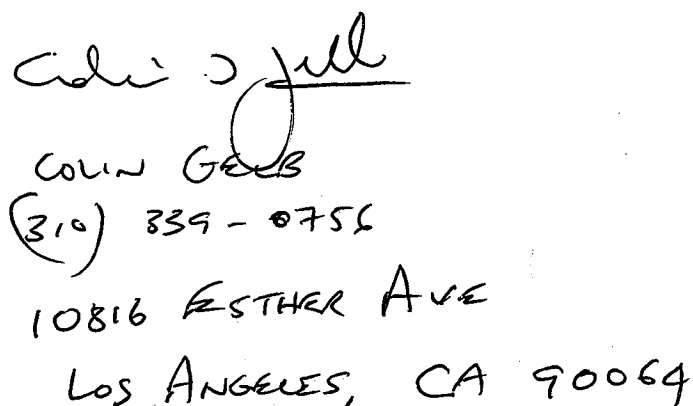 COLIN GELB
(310) 339-0756
10816 ESTHER AVE
LOS ANGELES, CA 90064